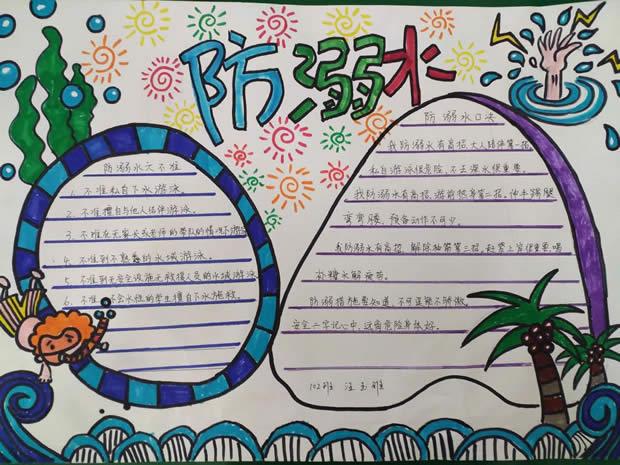 防溺水
防溺水六不准
1、不准私自下水游泳。
2、不准擅自与他人结伴游泳。
3、不准在无家长或老师的带队的情况下游泳
4、不准到不熟悉的水域游泳。
5、不准到无安全设施无救援人员的水域游泳
6、不准不会水性的学生擅自下水施救。
防溺水口决
我防溺水有高招,大人陪伴第一招,
私自游泳很危险,不去深水很重要。
我防溺水有高招,游前热身第二招,伸手踢腿
弯弯腰,预备动作不可少。
我防溺水有高招,解除抽筋第三招,赶紧上岸很重要,喝
补糖水解疲劳。
防溺措施要知道,不可逞能不骄傲,
安全二字记心中,远离危险身体好。
102班 汪